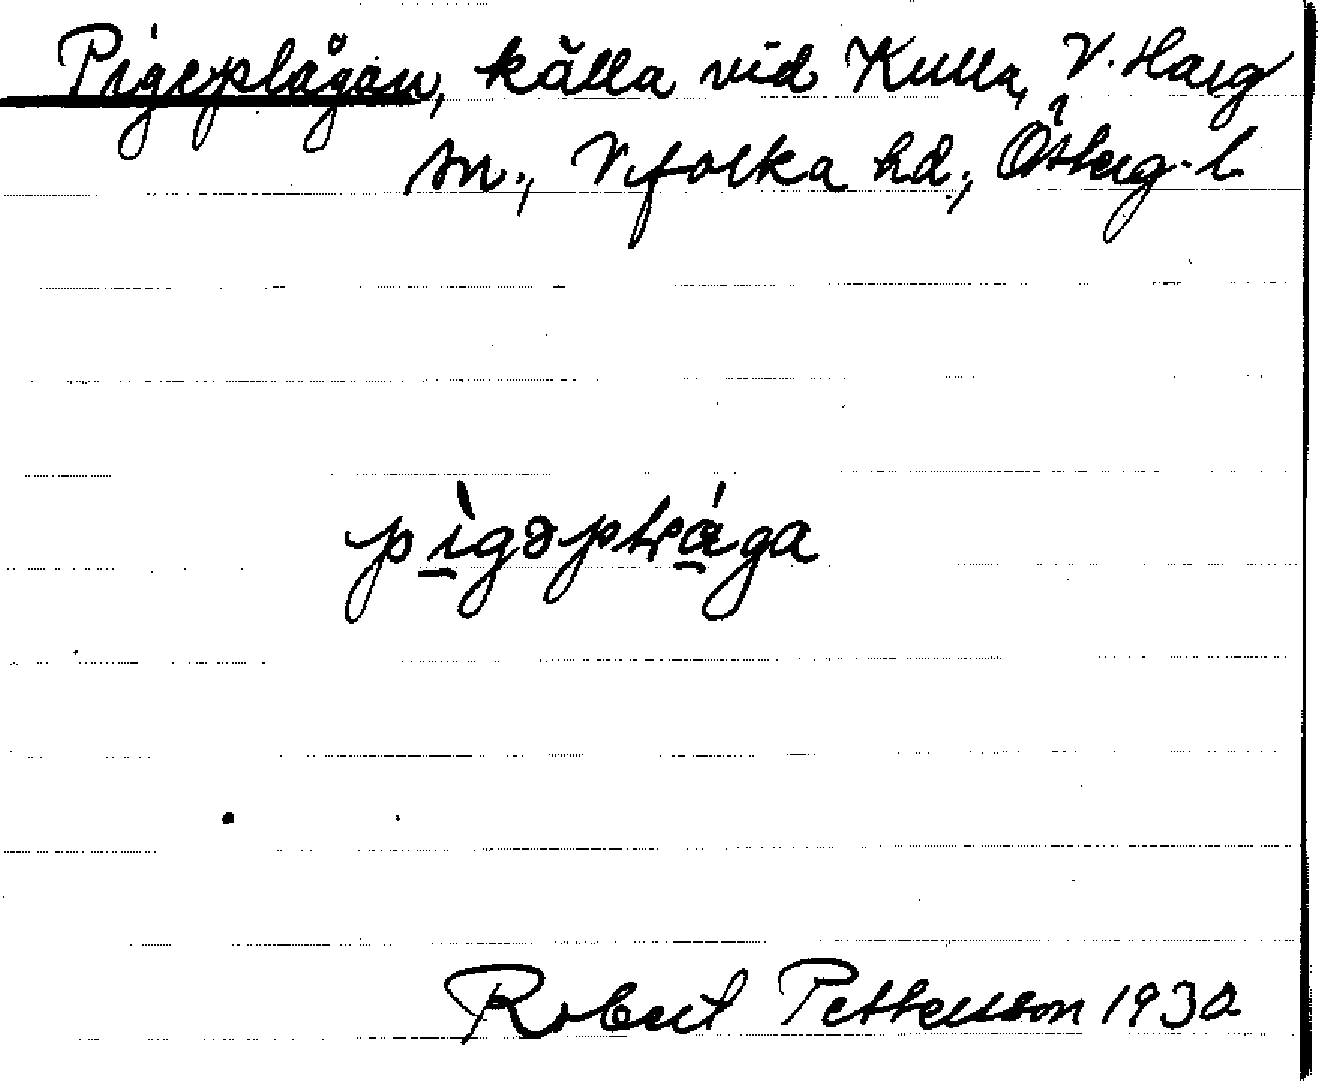 Pigeplågan, källa vid Kulla, V. Harg
sn., Vifolka hd., Österg. l
pìgəplága
Robert Pettersson 1932